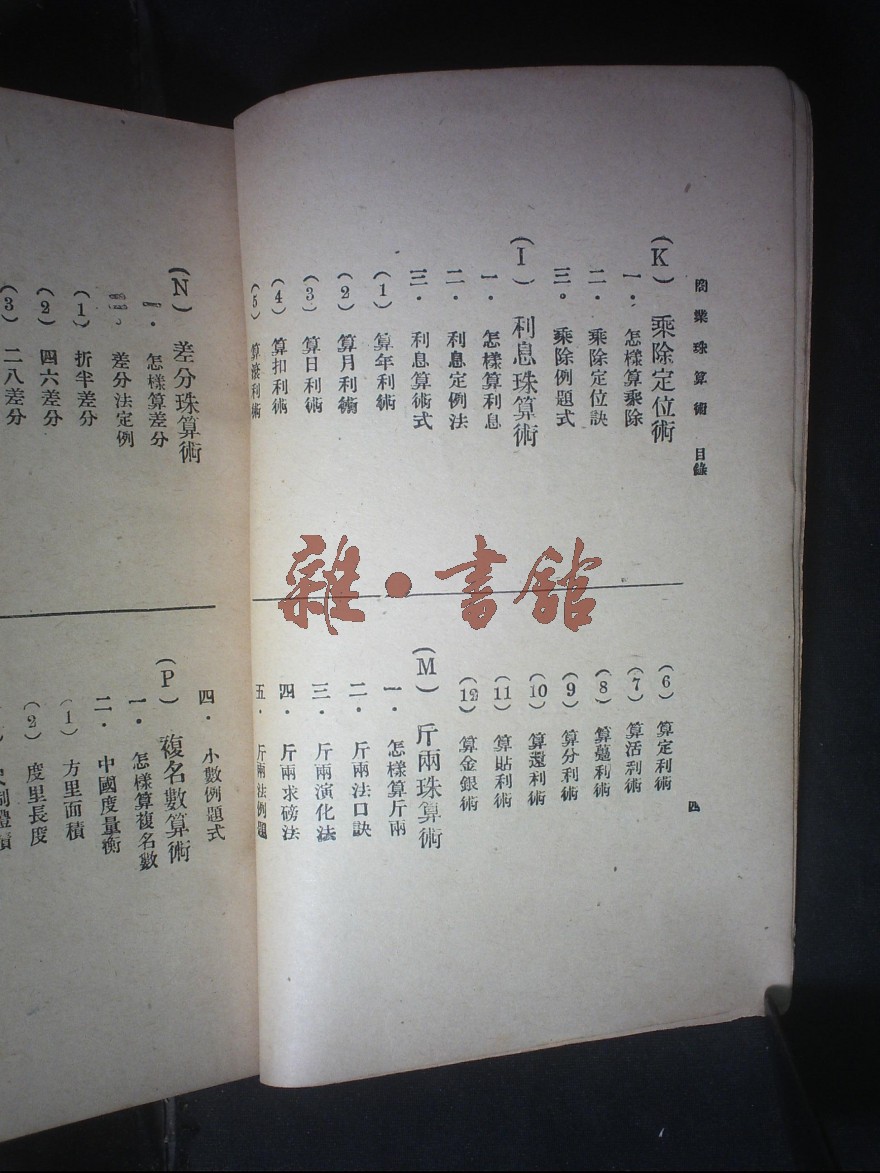 商業珠算術 目錄
四
(K) 乘除定位術
一. 怎樣算乘除
二. 乘除定位訣
三. 乘除例題式
(I) 利息珠算術
一. 怎樣算利息
二. 利息定例法
三. 利息算術式
(1) 算年利術
(2) 算月利術
(3) 算日利術
(4) 算扣利術
(5) 算滾利術
(6) 算定利術
(7) 算活利術
(8) 算躉利術
(9) 算分利術
(10) 算還利術
(11) 算貼利術
(12) 算金銀術
(M) 斤兩珠算術
一. 怎樣算斤兩
二. 斤兩法口訣
三. 斤兩演化法
四. 斤兩求磅法
五. 斤兩法例題
(N) 差分珠算術
一. 怎樣算差分
差分法定例
(1) 折半差分
(2) 四六差分
(3) 二八差分
四. 小數例題式
(P) 複名數算術
一. 怎樣算複名數
二. 中國度量衡
(1) 方里面積
(2) 度里長度
制體積
雜·書館